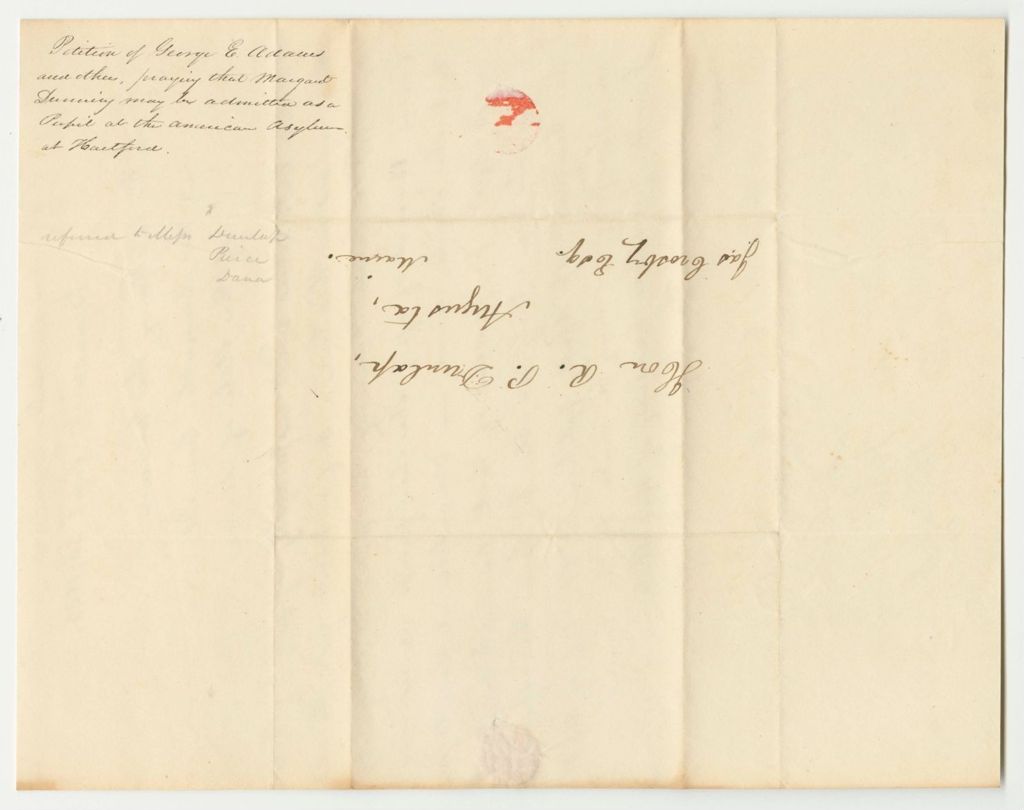 Petition of George E. Adams
and others, praying that Margaret
Dunning may be admitted as a
Pupil at the American Asylum
at Hartford.
referred to Mess Dunlap
Peirce
Dana
Hon R. P. Dunlap,
Augusta,
Maine.
Jas Crosby Esq.